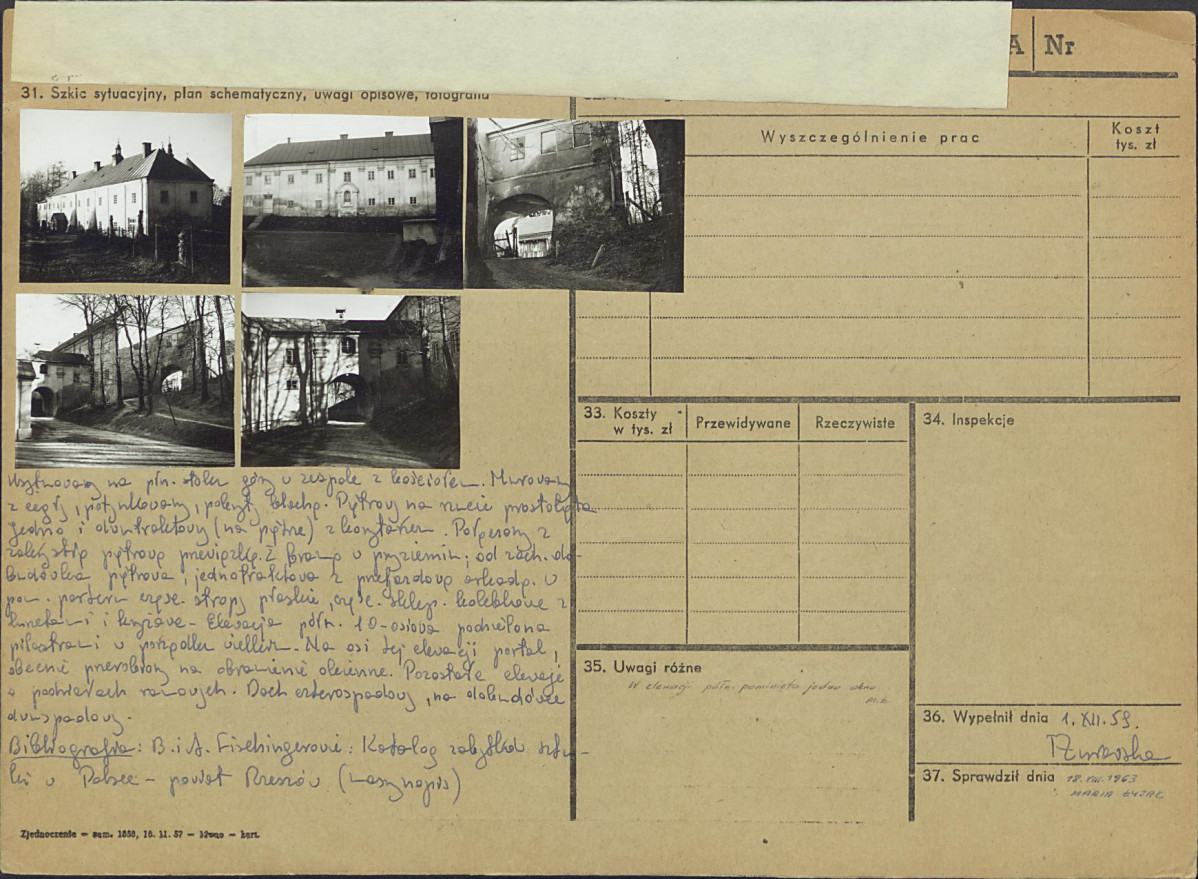 A Nr
31. Szkic sytuacyjny, plan schematyczny, uwagi opisowe, fotografia
Wyszczególnienie prac
Koszt
tys. zł
Usytuowany na płn. stoku góry w zespole z kościołem. Murowany
z cegły, potynkowany, pokryty blachą. Piętrowy na rzucie prostokąta
jedno i dwutraktowy (na piętrze) z korytarzem. Połączony z
piętrową z bramą w przyziemiu; od zach. do-
budówka piętrowa, jednotraktowa z przejazdową arkadą. W
pom. parteru częśc. stropy płaskie, częśc. sklep. kolebkowe z
lunetami i krzyżowe. Elewacja półn. 10-osiowa podzielona
pilastrami w porządku wielkim. Na osi tej elewacji portal,
obecnie przerobiony na obramienie okienne. Pozostałe elewacje
o podziałach ramowych. Dach czterospadowy, na dobudówce
dwuspadowy.
Bibliografia: B. i A. Fischingerowie: Katalog zabytków sztu-
ki w Polsce - powiat Rzeszów (maszynopis)
33. Koszty
w tys. zł
Przewidywane
Rzeczywiste
34. Inspekcje
35. Uwagi różne
W elewacji półn. pominięto jedno okno
M.Ł.
36. Wypełnił dnia 1.XII.59.
37. Sprawdził dnia 18.VIII.1963
MARIA
Zjednoczenie — zam. 1858, 16. II. 57 — — kart.